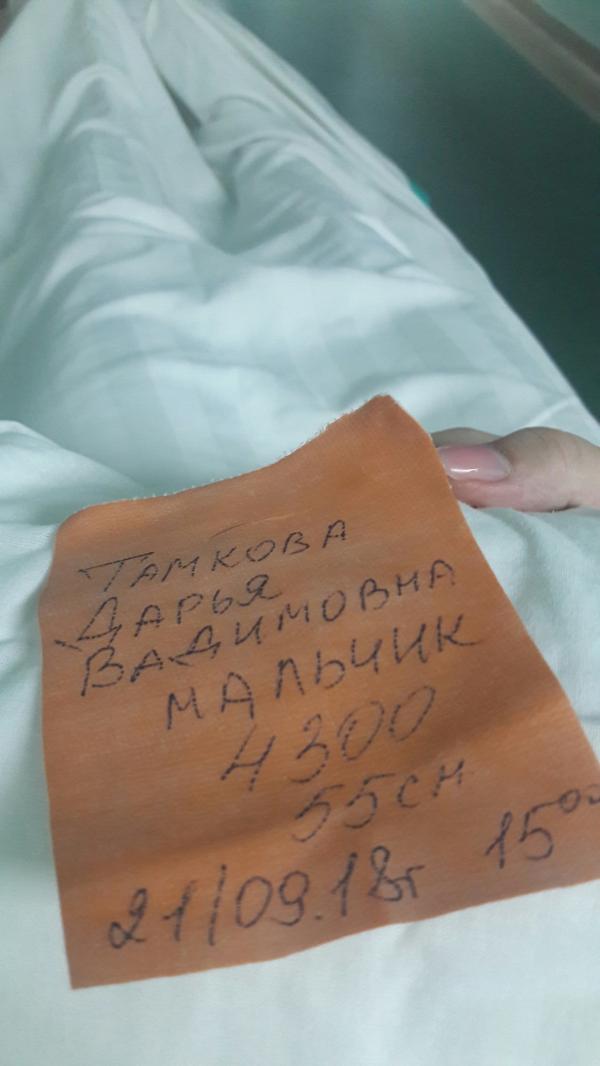 ТАМКОВА
ДАРЬЯ
ВАДИМОВНА
МАЛЬЧИК
4300
55см
21/09.18г 15⁰⁰